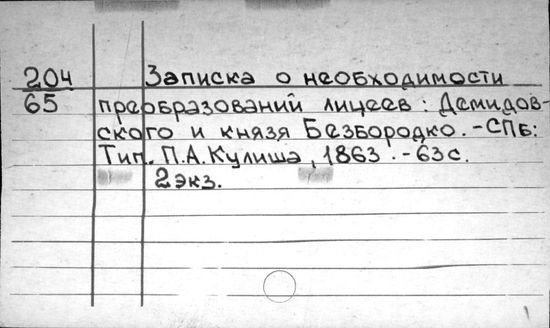 204 Записка о необходимости
65 преобразований лицеев: Демидов-
ского и князя Безбородко. - СПб:
Тип. П.А. Кулиша, 1863. - 63 с.
2 экз.